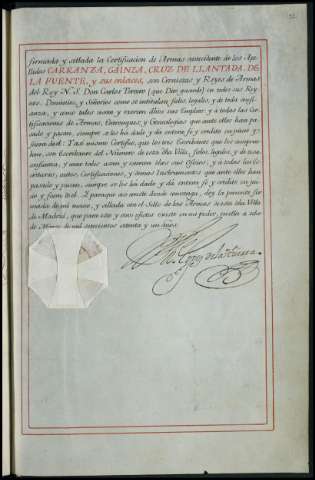 firmada y sellada la Certificacion de Armas antecedente de los Ape-
llidos CARRANZA, GAINZA, CRUZ DE LLANTADA, DE
LA FUENTE, y sus enlaces, son Cronistas y Reyes de Armas
del Rey N. S. Don Carlos Tercero (que Dios guarde) en todos sus Rey-
nos, Dominios, y Señorios como se intitulan, fieles, legales, y de toda confi-
anza, y como tales usan y exercen dhos sus Empleos: y à todas las Cer-
tificaciones de Armas, Entronques, y Genealogias que ante ellos han pa-
sado y pasan, siempre se les ha dado y da entera fé y credito en juicio y
fuera de él: Y asi mismo Certifico, que los tres Escribanos que los compru-
eban, son Escribanos del Numero de esta dha Villa, fieles, legales, y de toda
confianza, y como tales usan y exercen dhos sus Oficios, y à todas las Es-
crituras, autos, Certificaciones, y demas Instrumentos que ante ellos han
pasado y pasan, siempre se les ha dado y da entera fé y credito en jui-
cio y fuera de él. Y para que asi conste donde convenga, doy la presente fir-
mada de mi mano, y sellada con el Sello de las Armas de esta dha Villa
de Madrid, que para este y otros efectos existe en mi poder, en ella à
de Marzo de mil setecientos ochenta y un años.